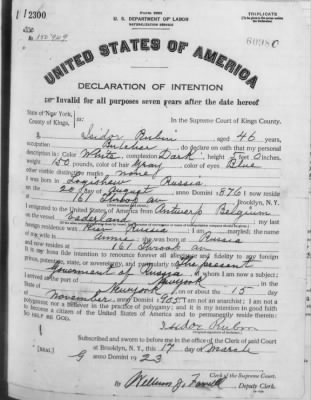 12300
Form 2203
U. S. DEPARTMENT OF LABOR
NATURALIZATION SERVICE
TRIPLICATE
No. 150909
UNITED STATES OF AMERICA
DECLARATION OF INTENTION
Invalid for all purposes seven years after the date hereof
State of New York,
County of Kings,
ss:
In the Supreme Court of Kings County.
I, Isidor Rubin, aged 46 years,
occupation Butcher, do declare on oath that my personal
description is: Color White, complexion Dark, height feet inches,
weight 150 pounds, color of hair Gray, color of eyes Blue
other visible distinctive marks none
I was born in Russia
on the 20 day of August, anno Domini 1876; I now reside
at 161 Throop av Brooklyn, N. Y.
I emigrated to the United States of America from Antwerp Belgium
on the vessel Vaderland; my last
foreign residence was Kiev Russia; I am married; the name
of my wife is Annie; she was born at Russia
and now resides at 161 Throop av
It is my bona fide intention to renounce forever all allegiance and fidelity to any foreign
prince, potentate, state, or sovereignty, and particularly to The present
Government of Russia, of whom I am now a subject;
I arrived at the port of New York, in the
State of New York, on or about the 15 day
of November, anno Domini 1905; I am not an anarchist; I am not a
polygamist nor a believer in the practice of polygamy; and it is my intention in good faith
to become a citizen of the United States of America and to permanently reside therein:
SO HELP ME GOD.
Isidor Rubin
Subscribed and sworn to before me in the office of the Clerk of said Court
[SEAL] at Brooklyn, N. Y., this 17 day of March
anno Domini 1923
Clerk of the Supreme Court.
By William J. Farrell, Deputy Clerk.